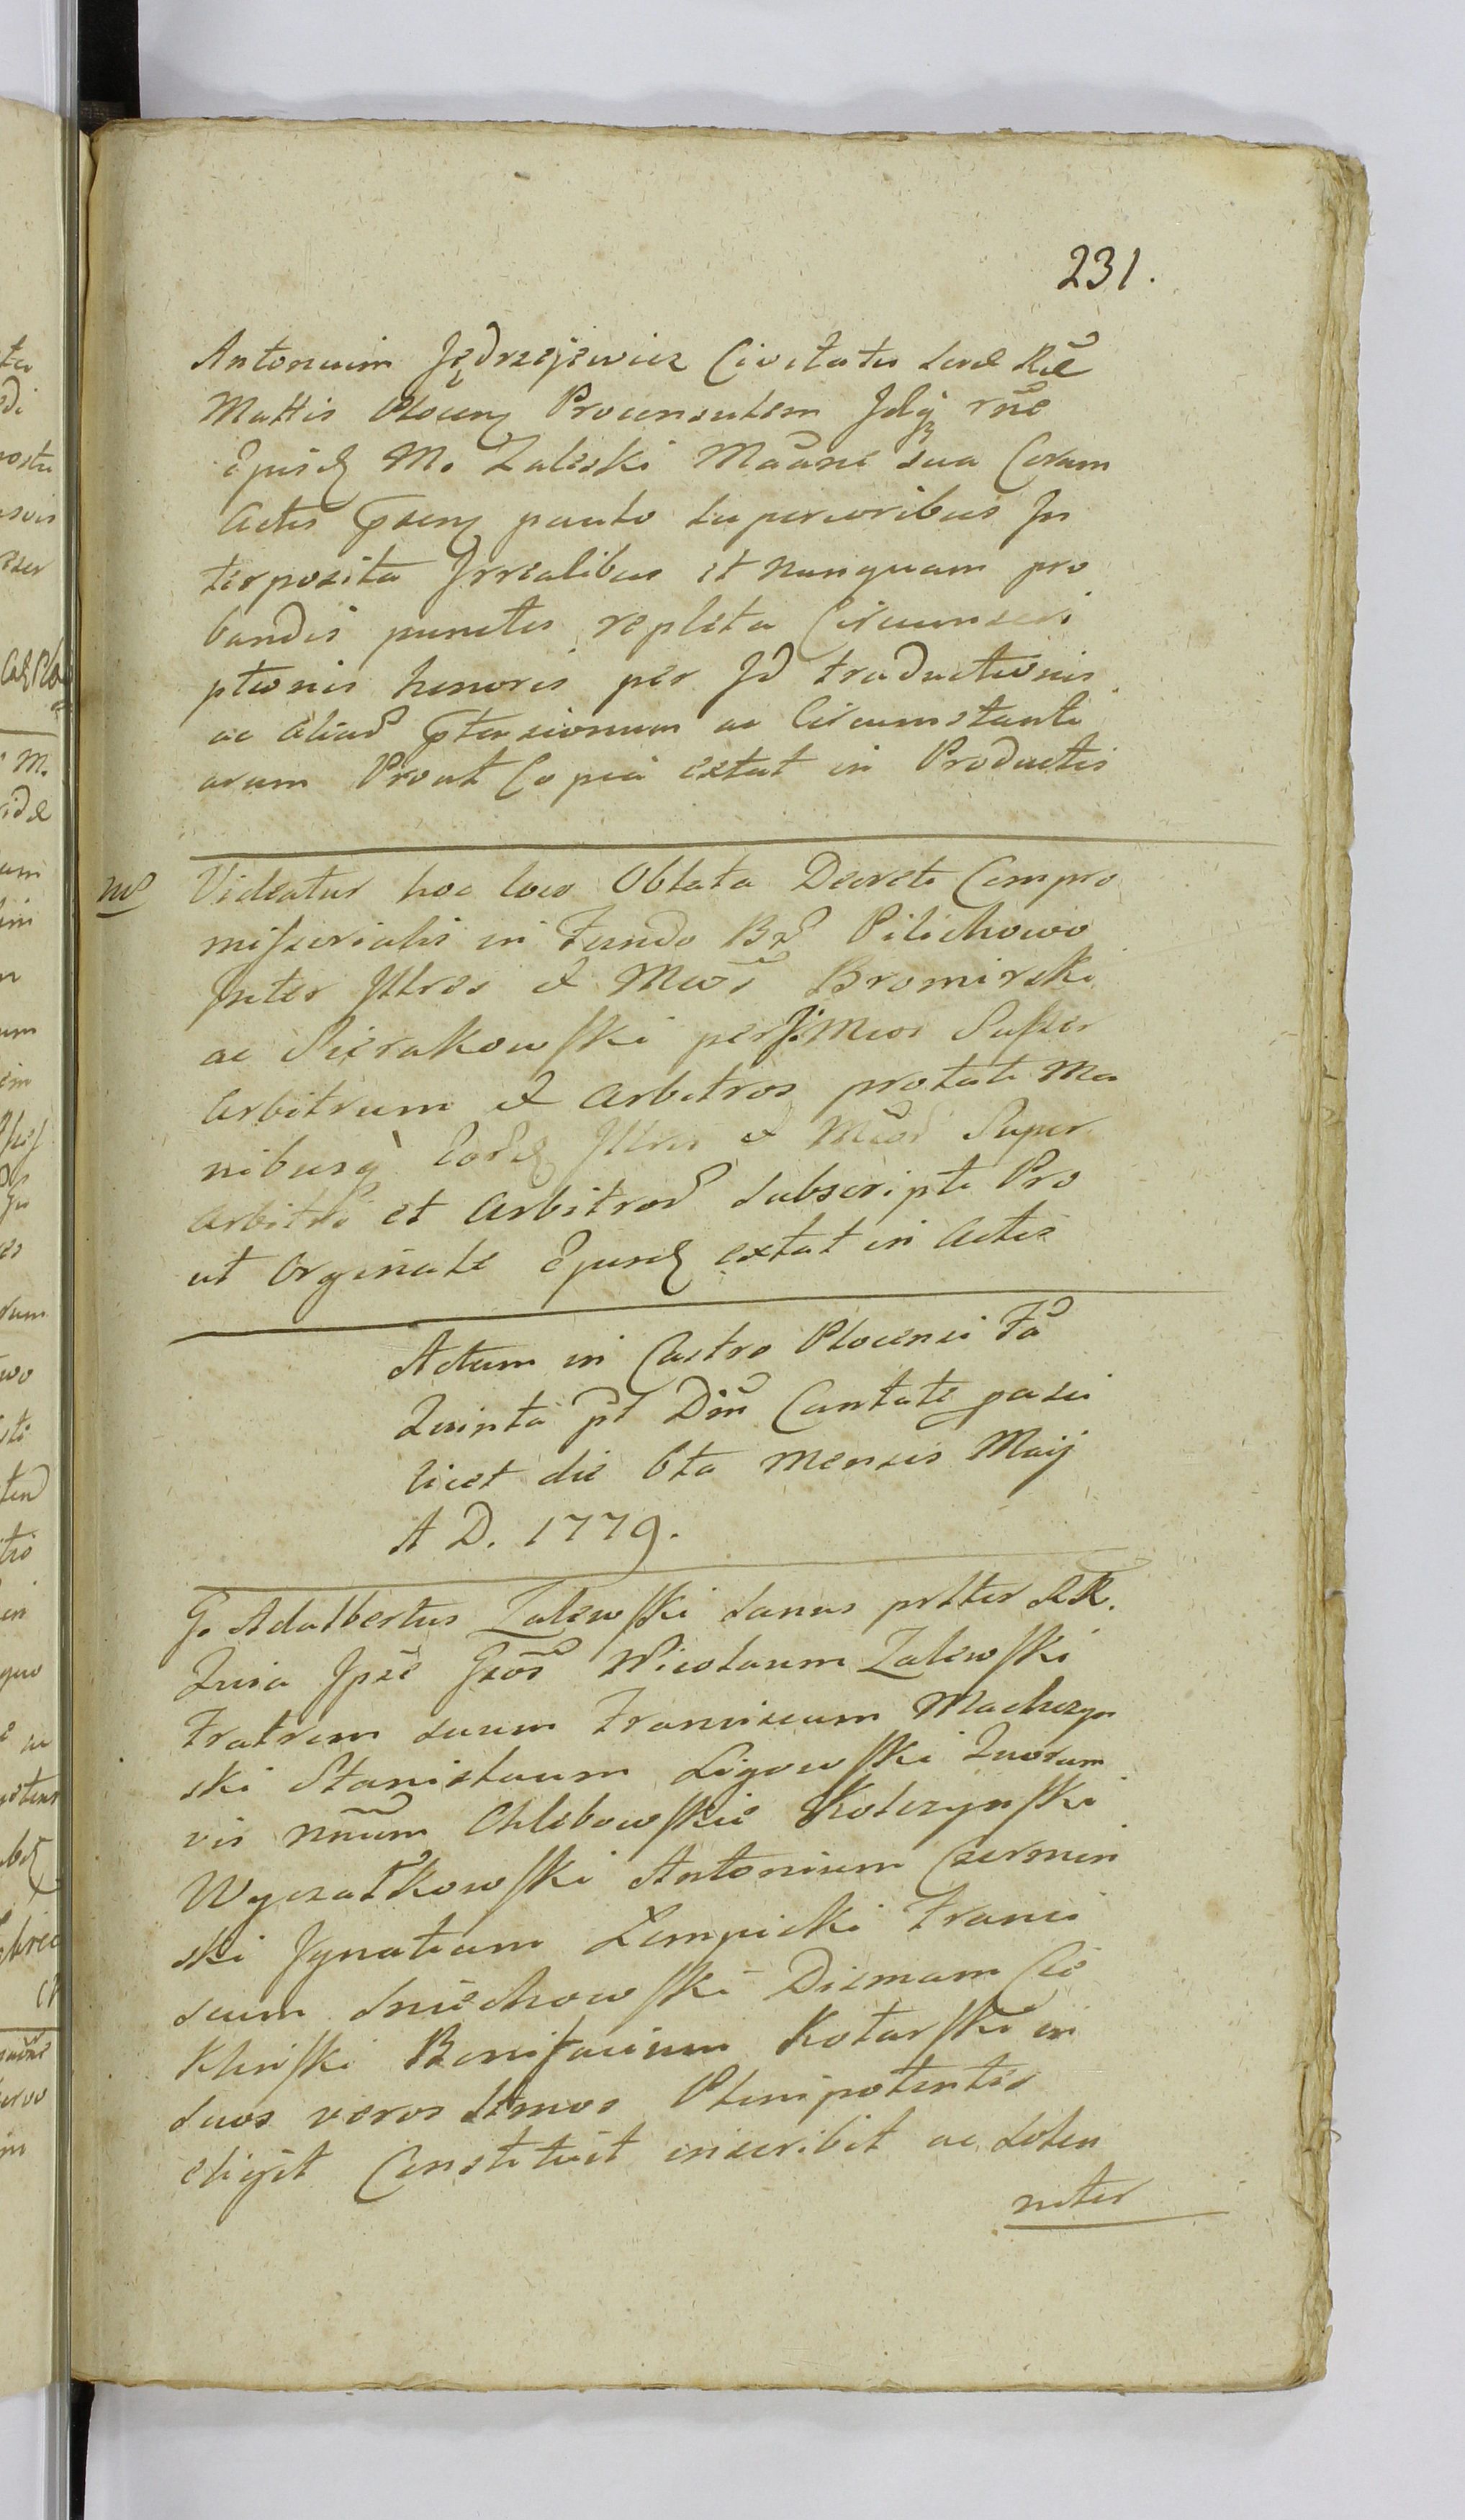 231.
Antonium Jędrzejewicz Civitatis Sacæ Ræ
Mattis Plocens Proconsulem Jdq rñe
Ejusd M. Zaleski Maãne sua Coram
Actis pñsens paulo superioribus In
terposita Irrealibus et nunquam pro
bandis punctis repleta Circumscri
ptionis honoris per Id traductionis
ac aliaȓ ptensionum ac Circumstanti
arum Prout Copia extat in Productis
Videatur hoc loco Oblata Decreti Compro
missorialis in Fundo Bȓ Pilichowo
Inter Illres & Mcos Bromirski
ac Sierakowski per I. Mcos Super
arbitrum & Arbitros prolati Ma
nibusq Eord Illris & Mcoȓ Super
arbitri et Arbitroȓ subscripti Pro
ut Orginale Ejusd extat in Actis
Actum in Castro Plocensi Fa
Quinta pt Dm̃ Cantate passi
licet die 6ta Mensis Maij
A D. 1779.
G. Adalbertus Zalewski sanus prtter RR.
Quia Ipse Gsos Nicolaum Zalewski
Fratrem suum Franciscum Machczyn
ski Stanislaum Ligowski Quorum
vis nnum Chlebowskie Kolczynski
Wyczałkowski Antonium Czermin
ski Ignatium Łempicki Franci
scum Sniechowski Dismam Cie
klinski Bonifacium Kotarski in
suos veros Ltmos Plenipotentes
eligit Constituit inscribit ac solen
niter